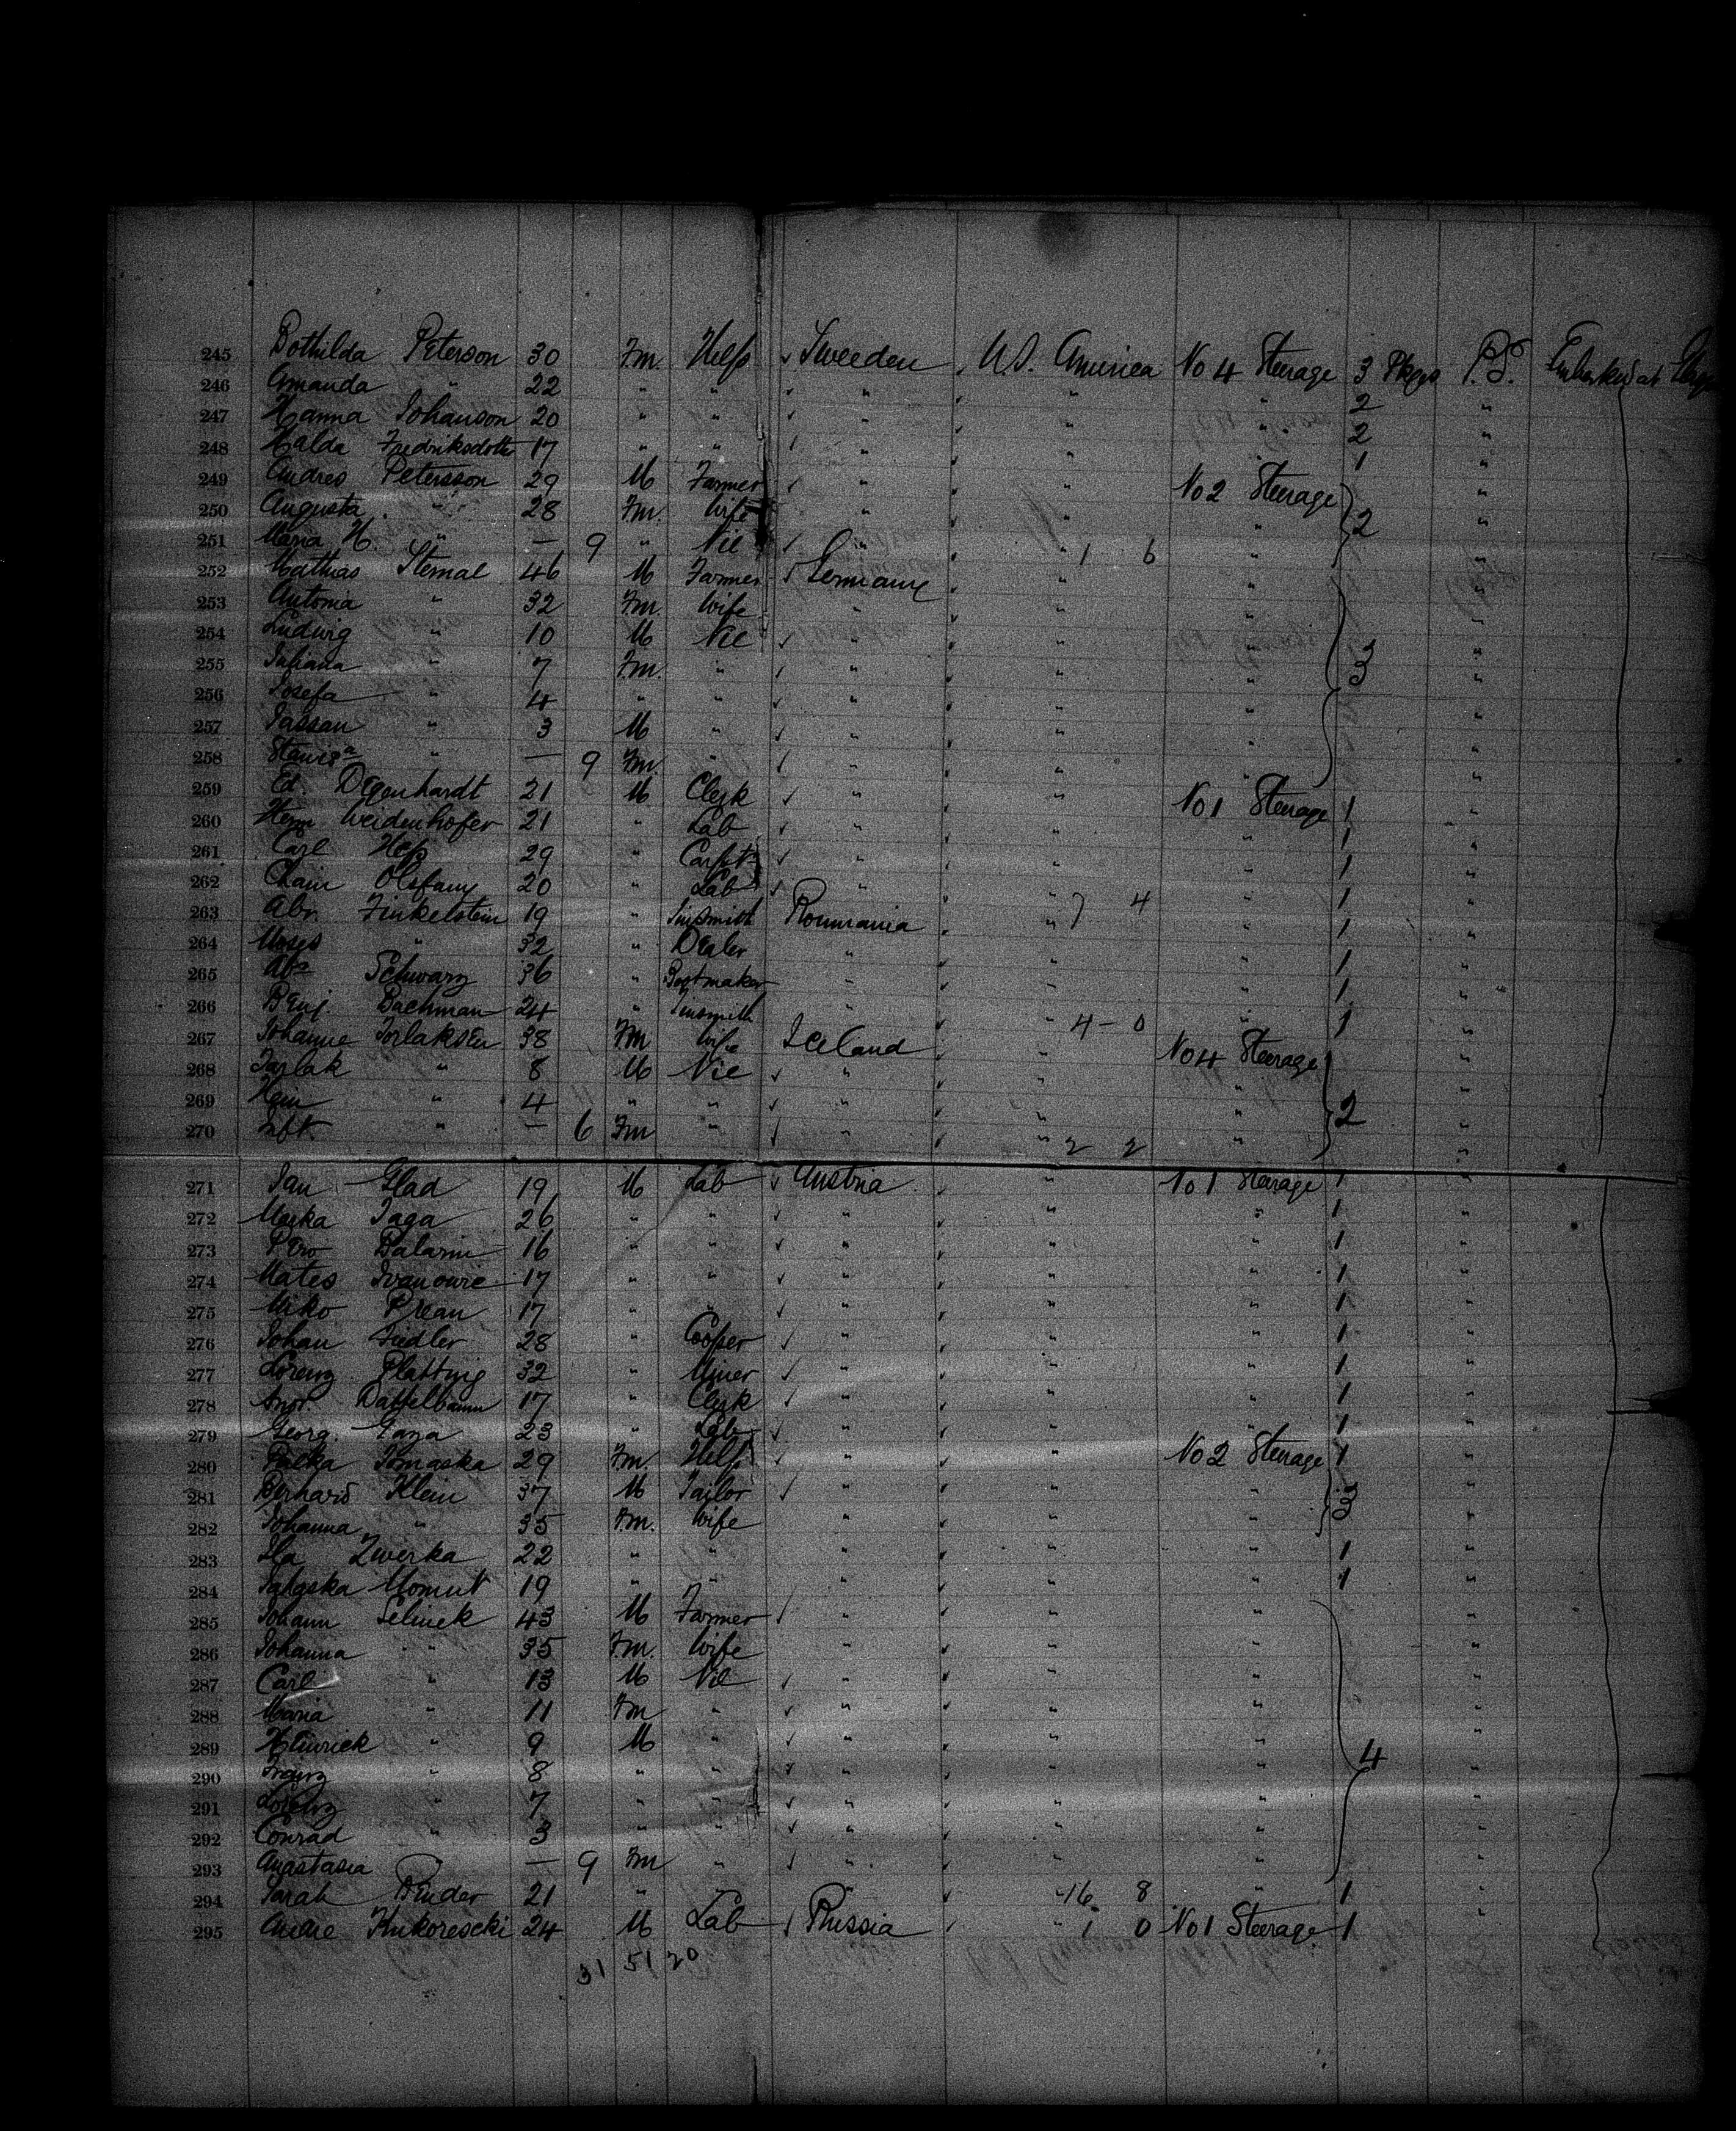 245 Bothilda Peterson 30 Fm. Help Sweeden U.S. America No 4 Steerage 3 Pkgs P.S. Embarked at
246 Amanda " 22 " " " " " 2 "
247 Hanna Johanson 20 " " " " " 2 "
248 Fredriksdotter 17 " " " " 1 "
249 Andres Petersson 29 M Farmer " " No 2 Steerage "
250 Augusta " 28 Fm. Wife " " " 2 "
251 Maria H. " — 9 " Nil " " 1 6 "
252 Mathias Stemal 46 M Farmer Germany " " "
253 Antonia " 32 Fm. Wife " " " "
254 Ludwig " 10 M Nil " " " "
255 Juliana " 7 Fm. " " " " 3 "
256 Josefa " 4 " " " " " "
257 " 3 M " " " " "
258 " — 9 Fm. " " " " "
259 Ed. Degenhardt 21 M Clerk " " No 1 Steerage 1 "
260 Herm Weidenhofer 21 " Lab " " " 1 "
261 Carl Hess 29 " " " " 1 "
262 Chaim 20 " Lab " " 7 4 " 1 "
263 Abr. Finkelstein 19 " Tinsmith Roumania " " 1 "
264 Moses " 32 " Dealer " " " 1 "
265 Abr Schwarz 36 " Bootmaker " " " 1 "
266 Benj. Bachman 24 " Tinsmith " " 4 - 0 " 1 "
267 Johanne Torlaksen 38 Fm Wife Iceland " No 4 Steerage "
268 Torlak " 8 M Nil " " " "
269 " 4 " " " " " 2 "
270 Inft " — 6 Fm " " " 2 2 " "
271 Jan Glad 19 M Lab Austria " No 1 Steerage 1 "
272 Marka Jaga 26 " " " " " 1 "
273 Pero Balarin 16 " " " " " 1 "
274 Mates Ivanovic 17 " " " " " 1 "
275 Miko 17 " " " " " 1 "
276 Johan Fiedler 28 " Cooper " " " 1 "
277 Lorenz Plattnig 32 " Miner " " " 1 "
278 Dattelbaum 17 " Clerk " " " 1 "
279 Georg. Gaza 23 " Lab " " " 1 "
280 Tomaska 29 Fm. Help " " No 2 Steerage 1 "
281 Bernard Klein 37 M Tailor " " " 3 "
282 Johanna " 35 Fm. Wife " " " "
283 Zwerka 22 " " " " " 1 "
284 Momut 19 " " " " " 1 "
285 Johann Jelinek 43 M Farmer " " " "
286 Johanna " 35 Fm. Wife " " " "
287 Carl " 13 M Nil " " " "
288 Maria " 11 Fm " " " " "
289 Heinrick " 9 M " " " " 4 "
290 Franz " 8 " " " " " "
291 Lorenz " 7 " " " " " "
292 Conrad " 3 " " " " " "
293 Anastasia " — 9 Fm " " " " "
294 Sarah Binder 21 " " " " 16 8 " 1 "
295 24 M Lab Russia " 1 0 No 1 Steerage 1 "
31 51 20